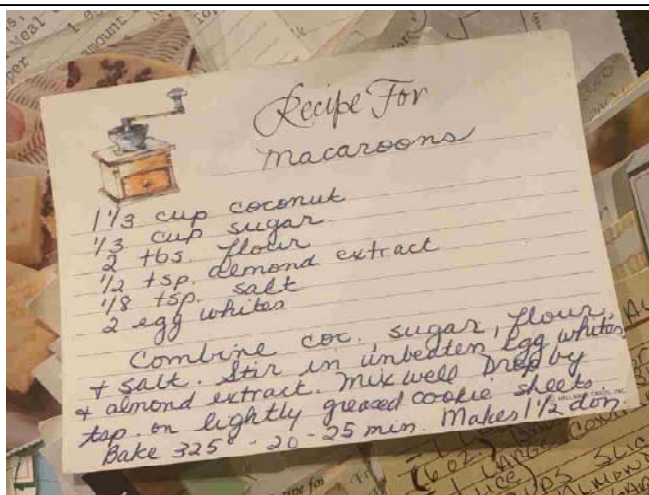 Recipe For
macaroons
1 1/3 cup coconut
1/3 cup sugar
2 tbs. flour
1/2 tsp. almond extract
1/8 tsp. salt
2 egg whites
Combine coc., sugar, flour,
+ salt. Stir in unbeaten Egg whites
+ almond extract. mix well Drop by
tsp. on lightly greased cookie sheets.
Bake 325° - 20 - 25 min. Makes 1 1/2 doz.
© HALLMARK CARDS, INC.
350